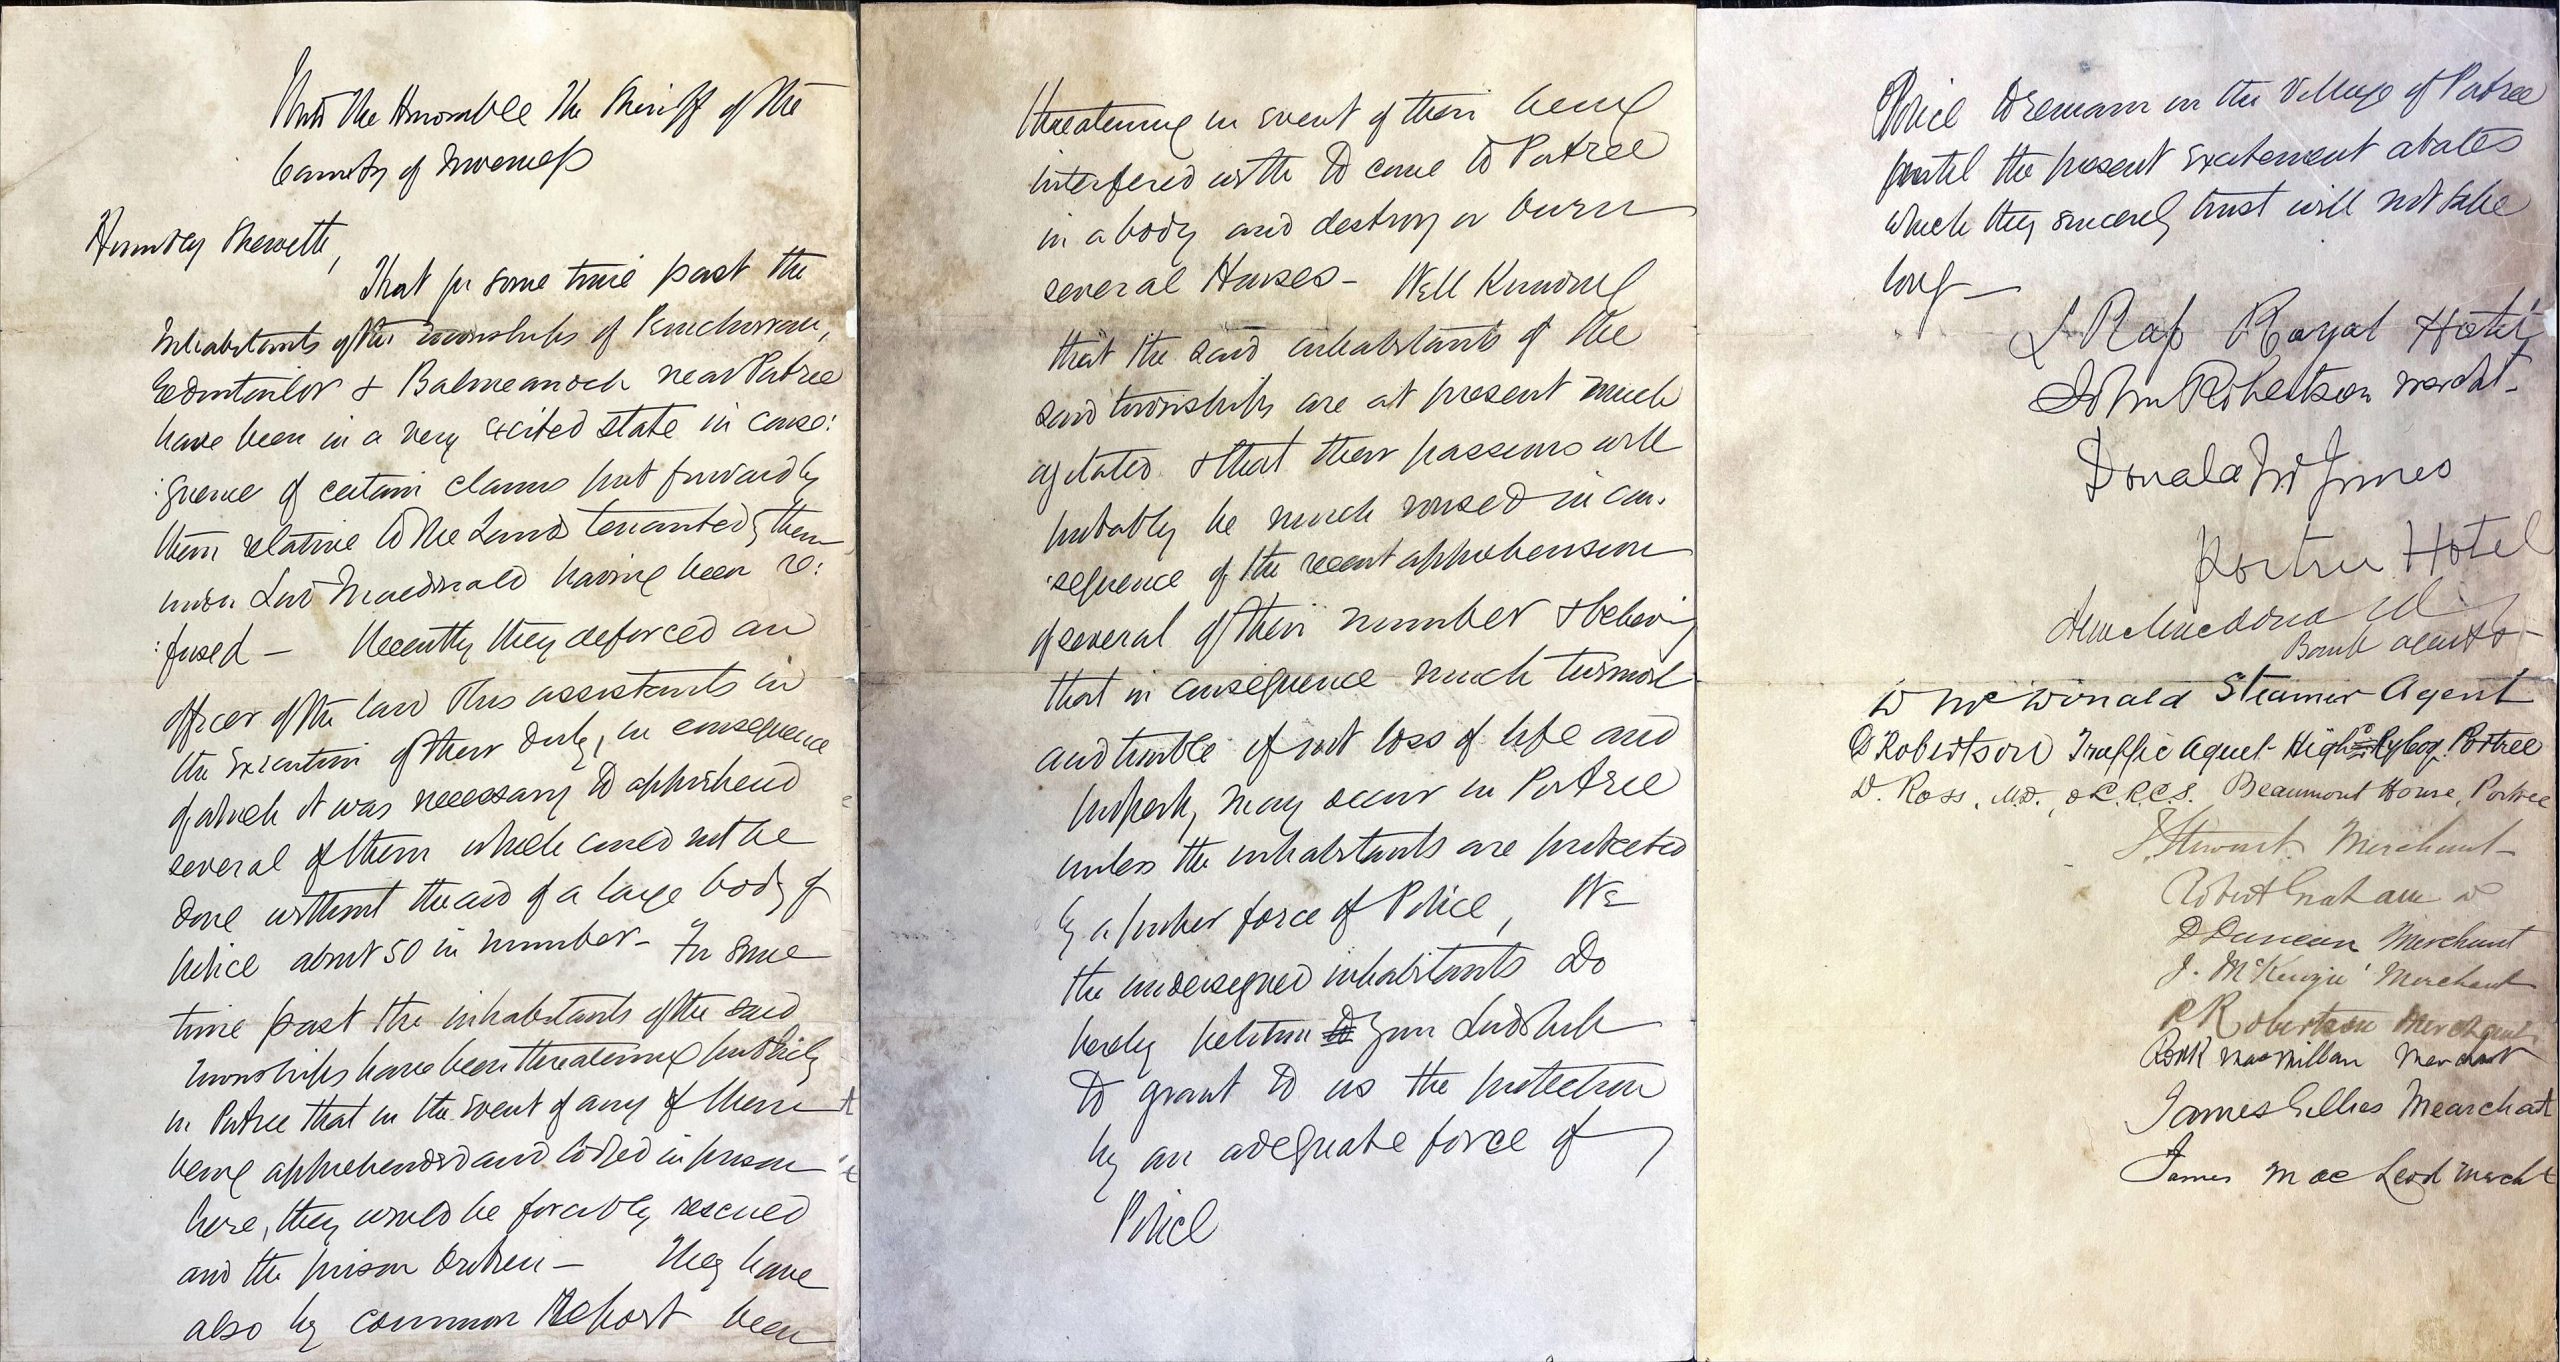 Unto the Honorable the Sheriff of the
County of Inverness
Humbly Sheweth,
That for some time past the
Inhabitants of the townships of Penchorran,
Gedintailor & Balmeanoch near Portree
have been in a very excited state in conse:
:quence of certain claims put forward by
them relative to the Lands tenanted by them
under Lord Macdonald having been re:
:fused — Recently they deforced an
officer of the law & his assistants in
the execution of their duty, in consequence
of which it was necessary to apprehend
several of them which could not be
done without the aid of a large body of
police about 50 in number — For some
time past the inhabitants of the said
townships have been threatening publicly
in Portree that in the event of any of them
being apprehended and lodged in prison
here, they would be forcibly rescued
and the prison broken — They have
also by common Report been
threatening in event of their being
interfered with to come to Portree
in a body and destroy or burn
several Houses — Well Knowing
that the said inhabitants of the
said townships are at present much
agitated & that their passions will
probably be much roused in con:
:sequence of the recent apprehension
of several of their number & believing
that in consequence much turmoil
and trouble if not loss of life and
property may occur in Portree
unless the inhabitants are protected
by a further force of Police, We
the undersigned inhabitants do
hereby petition to your Lordship
to grant to us the protection
by an adequate force of
Police
Police to remain in the Village of Portree
until the present excitement abates
which they sincerely trust will not take
long —
L Ross Royal Hotel
John Robertson mercht.
Donald McInnes
Portree Hotel
Macdonald
Bank agent
D McDonald Steamer Agent
D Robertson Traffic Agent Portree
D. Ross, M.D., L.R.C.S. Beaumont House, Portree
J. Stewart Merchant
Robert Graham do
D Duncan Merchant
J. McKenzie Merchant
R Robertson Merchant
Rodk MacMillan Merchant
James Gillies Mearchat
James MacLeod Mercht